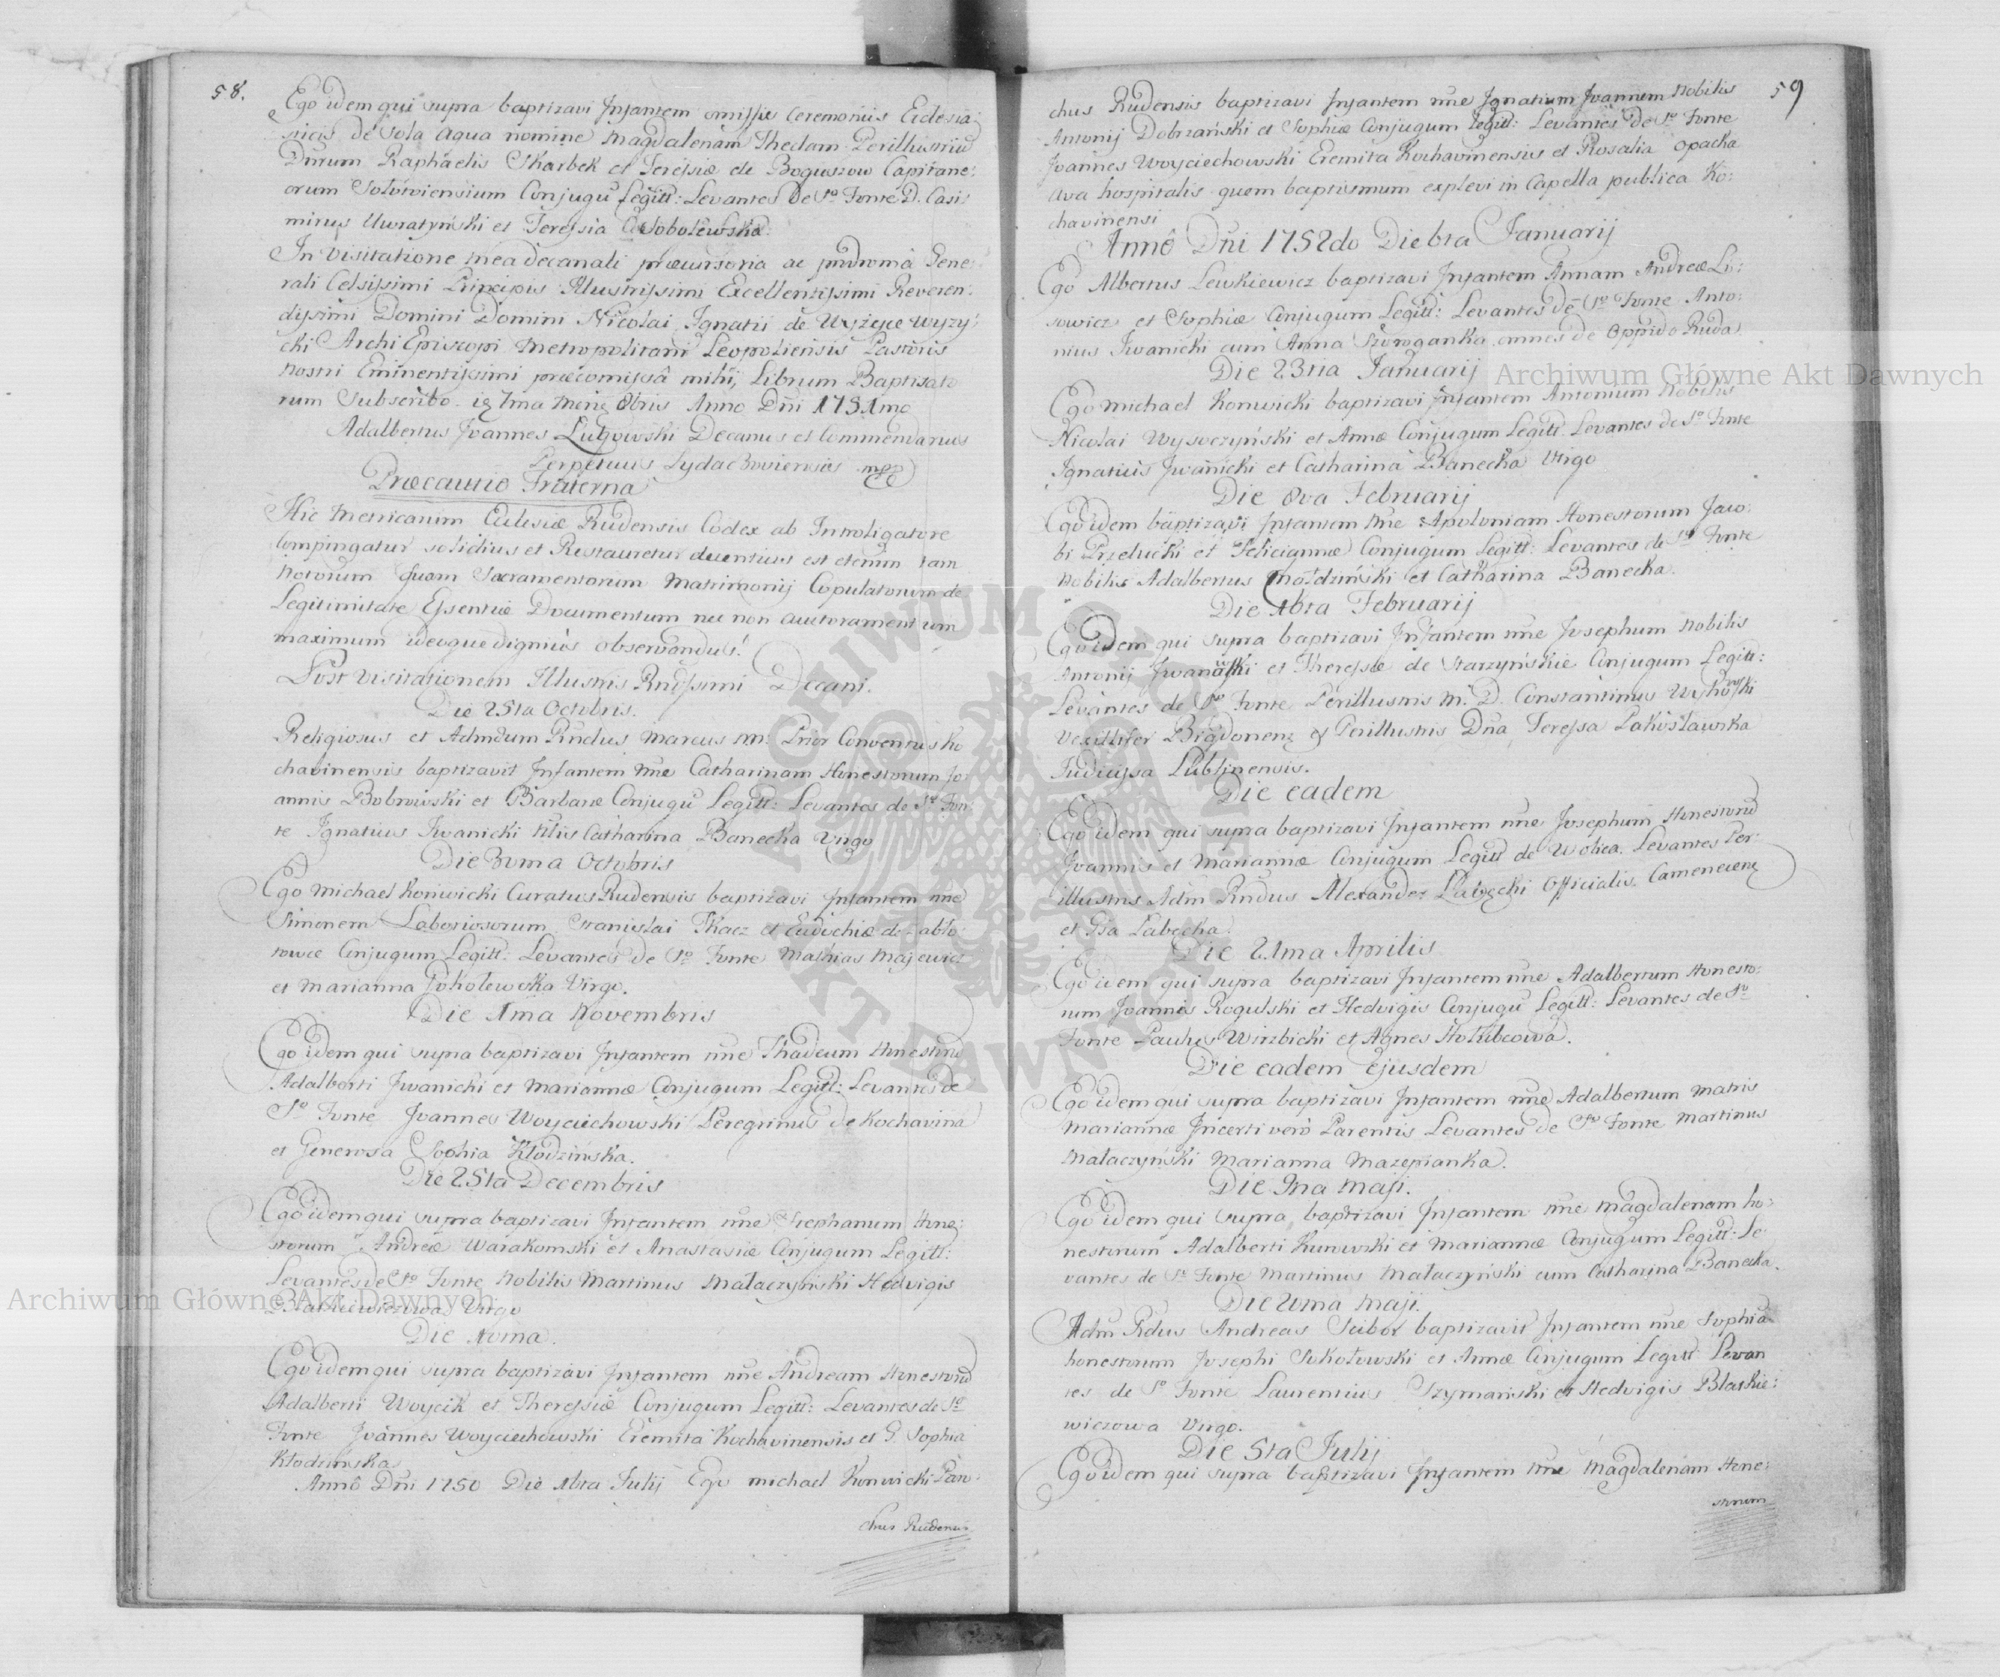 58.
Ego idem qui supra baptizavi Infantem omissis Ceremoniis Ecclesia:
sticis de sola aqua nomine Magdalenam Theclam Perillustriũ
Dnũrum Raphaelis Skarbek et Teressiæ de Boguszow Capitane:
orum Sołotwiensium Conjugũ Legitt: Levantes de S:o Fonte D. Casi:
mirus Uwratyński et Teressia Sobolewska.
In Visitatione mea decanali præcursoria ac pndroma Gene:
rali Celsissimi Principis Illustrissimi Excellentissimi Reveren:
dissimi Domini Domini Nicolai Ignatii de Wyżyce Wyży:
cki Archi Episcopi Metropolitani Leopoliensis Pastoris
Nostri Eminentissimi præcomissâ mihi, Librum Baptisato
rum Subscribo 8bris Anno Dñi 1751mo
Adalbertus Joannes Decanus et Commendarius
Perpetuus mpp
Præcautio Fraterna
Hic Metricarum Eclesiæ Rudensis Codex ab Introligatore
Compingatur solidius et Restauretur est etenim tam
Notorum quam Sacramentorum Matrimonij Copulatorum de
Legitimitate Essentiæ Documentum nec non auctoramentum
maximum ideoque dignius observandus!
Post Visitationem Illustris Rndssimi Decani.
Die 25ta Octobris.
Religiosus et Admdum Rndus Marcus M: Prior Conventus Ko
chavinensis baptizavit Infantem nne Catharinam Honestorum Jo:
annis Bobrowski et Barbaræ Conjugũ Legitt: Levantes de S:o Fon
te Ignatius Iwanicki Catharina Banecka Virgo
Die 30ma Octobris
Ego Michael Konwicki Curatus Rudensis baptizavi Infantem nne
Simonem Laboriosorum Stanislai Tkacz et Eudichiæ de Zabło:
towce Conjugum Legitt: Levantes de S:o Fonte Mathias Majewicz
et Marianna Pokolewska Virgo.
Die 11ma Novembris
Ego idem qui supra baptizavi Infantem nne Thadeum Honestorũ
Adalberti Iwanicki et Mariannæ Conjugum Legitt: Levantes de
S:o Fonte Joannes Woyciechowski Peregrinus de Kochavina
et Generosa Sophia Kłodzińska.
Die 25ta Decembris
Ego idem qui supra baptizavi Infantem nne Stephanum Hone:
storum Andreæ Warakomski et Anastasiæ Conjugum Legitt:
Levantes de S:o Fonte Nobilis Martinus Małaczyński Hedvigis
Błaskiewiczowa Virgo
Die
Ego idem qui supra baptizavi Infantem nne Andream Honestorũ
Adalberti Woycik et Theressiæ Conjugum Legitt: Levantes de S:o
Fonte Joannes Woyciechowski Eremita Kochavinensis et G. Sophia
Kłodzińska
Annô Dñi 1750 Die 16ta Julij Ego Michael Konwicki Paro
chus Rudensis
59
chus Rudensis baptizavi Infantem nne Ignatium Joannem Nobilis
Antonij Dobrzański et Sophiæ Conjugum Legitt: Levantes de S:o Fonte
Joannes Woyciechowski Eremita Kochavinensis et Rosalia Opacka
Ava hospitalis quem baptismum explevi in Capella publica Ko:
chavinensi
Annô Dñi 1752do Die 6ta Januarij
Ego Albertus Lewkiewicz baptizavi Infantem Annam Andreæ
sowicz et Sophiæ Conjugum Legitt: Levantes de S:o Fonte Anto:
nius Iwanicki cum Anna omnes de Oppido Ruda
Die 23tia Januarij
Ego Michael Konwicki baptizavi Infantem Antonium Nobilis
Nicolai Wysoczyński et Annæ Conjugum Legitt: Levantes de S:o Fonte
Ignatius Iwanicki et Catharina Banecka Virgo
Die 8va Februarij
Ego idem baptizavi Infantem nne Apoloniam Honestorum Jaco:
bi Przelucki et Feliciannæ Conjugum Legitt: Levantes de S:o Fonte
Nobilis Adalbertus Możdziński et Catharina Banecka.
Die 16ta Februarij
Ego idem qui supra baptizavi Infantem nne Josephum Nobilis
Antonij Iwanowski et Theressæ de Starzyńskie Conjugum Legitt:
Levantes de S:o Fonte Perillustris M. D. Constantinus
Vexillifer et Perillustris Dña Teressa Pakosławska
Judicissa Lublinensis.
Die eadem
Ego idem qui supra baptizavi Infantem nne Josephum Honestorũ
Joannis et Mariannæ Conjugum Legitt de Wolica. Levantes Per:
illustris Adm Rndus Alexander Łabęcki Officialis Camenecens
et Łabęcka.
Die 21ma Aprilis
Ego idem qui supra baptizavi Infantem nne Adalbertum Honesto:
rum Joannis Rogulski et Hedvigis Conjugũ Legitt: Levantes de S:o
Fonte Paulus Wirzbicki et Agnes Hołubcowa.
Die eadem Ejusdem
Ego idem qui supra baptizavi Infantem nne Adalbertum Matris
Mariannæ Incerti vero Parentis Levantes de S:o Fonte Martinus
Małaczyński Marianna Mazepianka.
Die Maji.
Ego idem qui supra baptizavi Infantem nne Magdalenam ho:
nestorum Adalberti Kurowski et Mariannæ Conjugum Legitt: Le:
vantes de S:o Fonte Martinus Małaczyński cum Catharina Banecka.
Die Maji.
Adm Rdus Andreas Scibor baptizavit Infantem nne Sophiã
honestorum Josephi Sokołowski et Annæ Conjugum Legitt Levan
tes de S:o Fonte Laurentius Szymański et Hedvigis Błaskie:
wiczowa Virgo.
Die 5ta Julij
Ego idem qui supra baptizavi Infantem nne Magdalenam Hone:
storum
Archiwum Główne Akt Dawnych
Archiwum Główne Akt Dawnych
ARCHIWUM GŁÓWNE AKT DAWNYCH